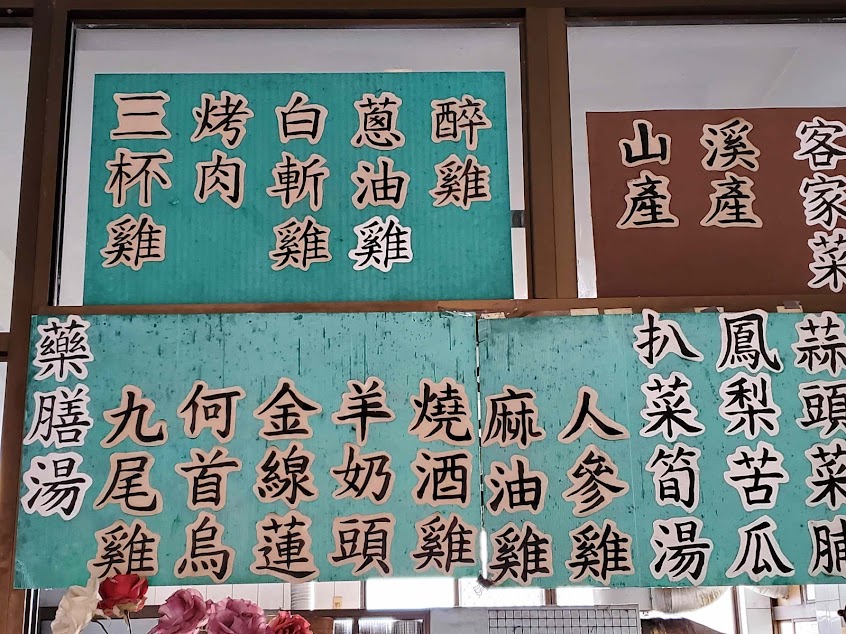 醉雞
蔥油雞
白斬雞
烤肉
三杯雞
客家菜
溪產
山產
蒜頭菜脯
鳳梨苦瓜
扒菜筍湯
人參雞
麻油雞
燒酒雞
羊奶頭
金線蓮
何首烏
九尾雞
藥膳湯